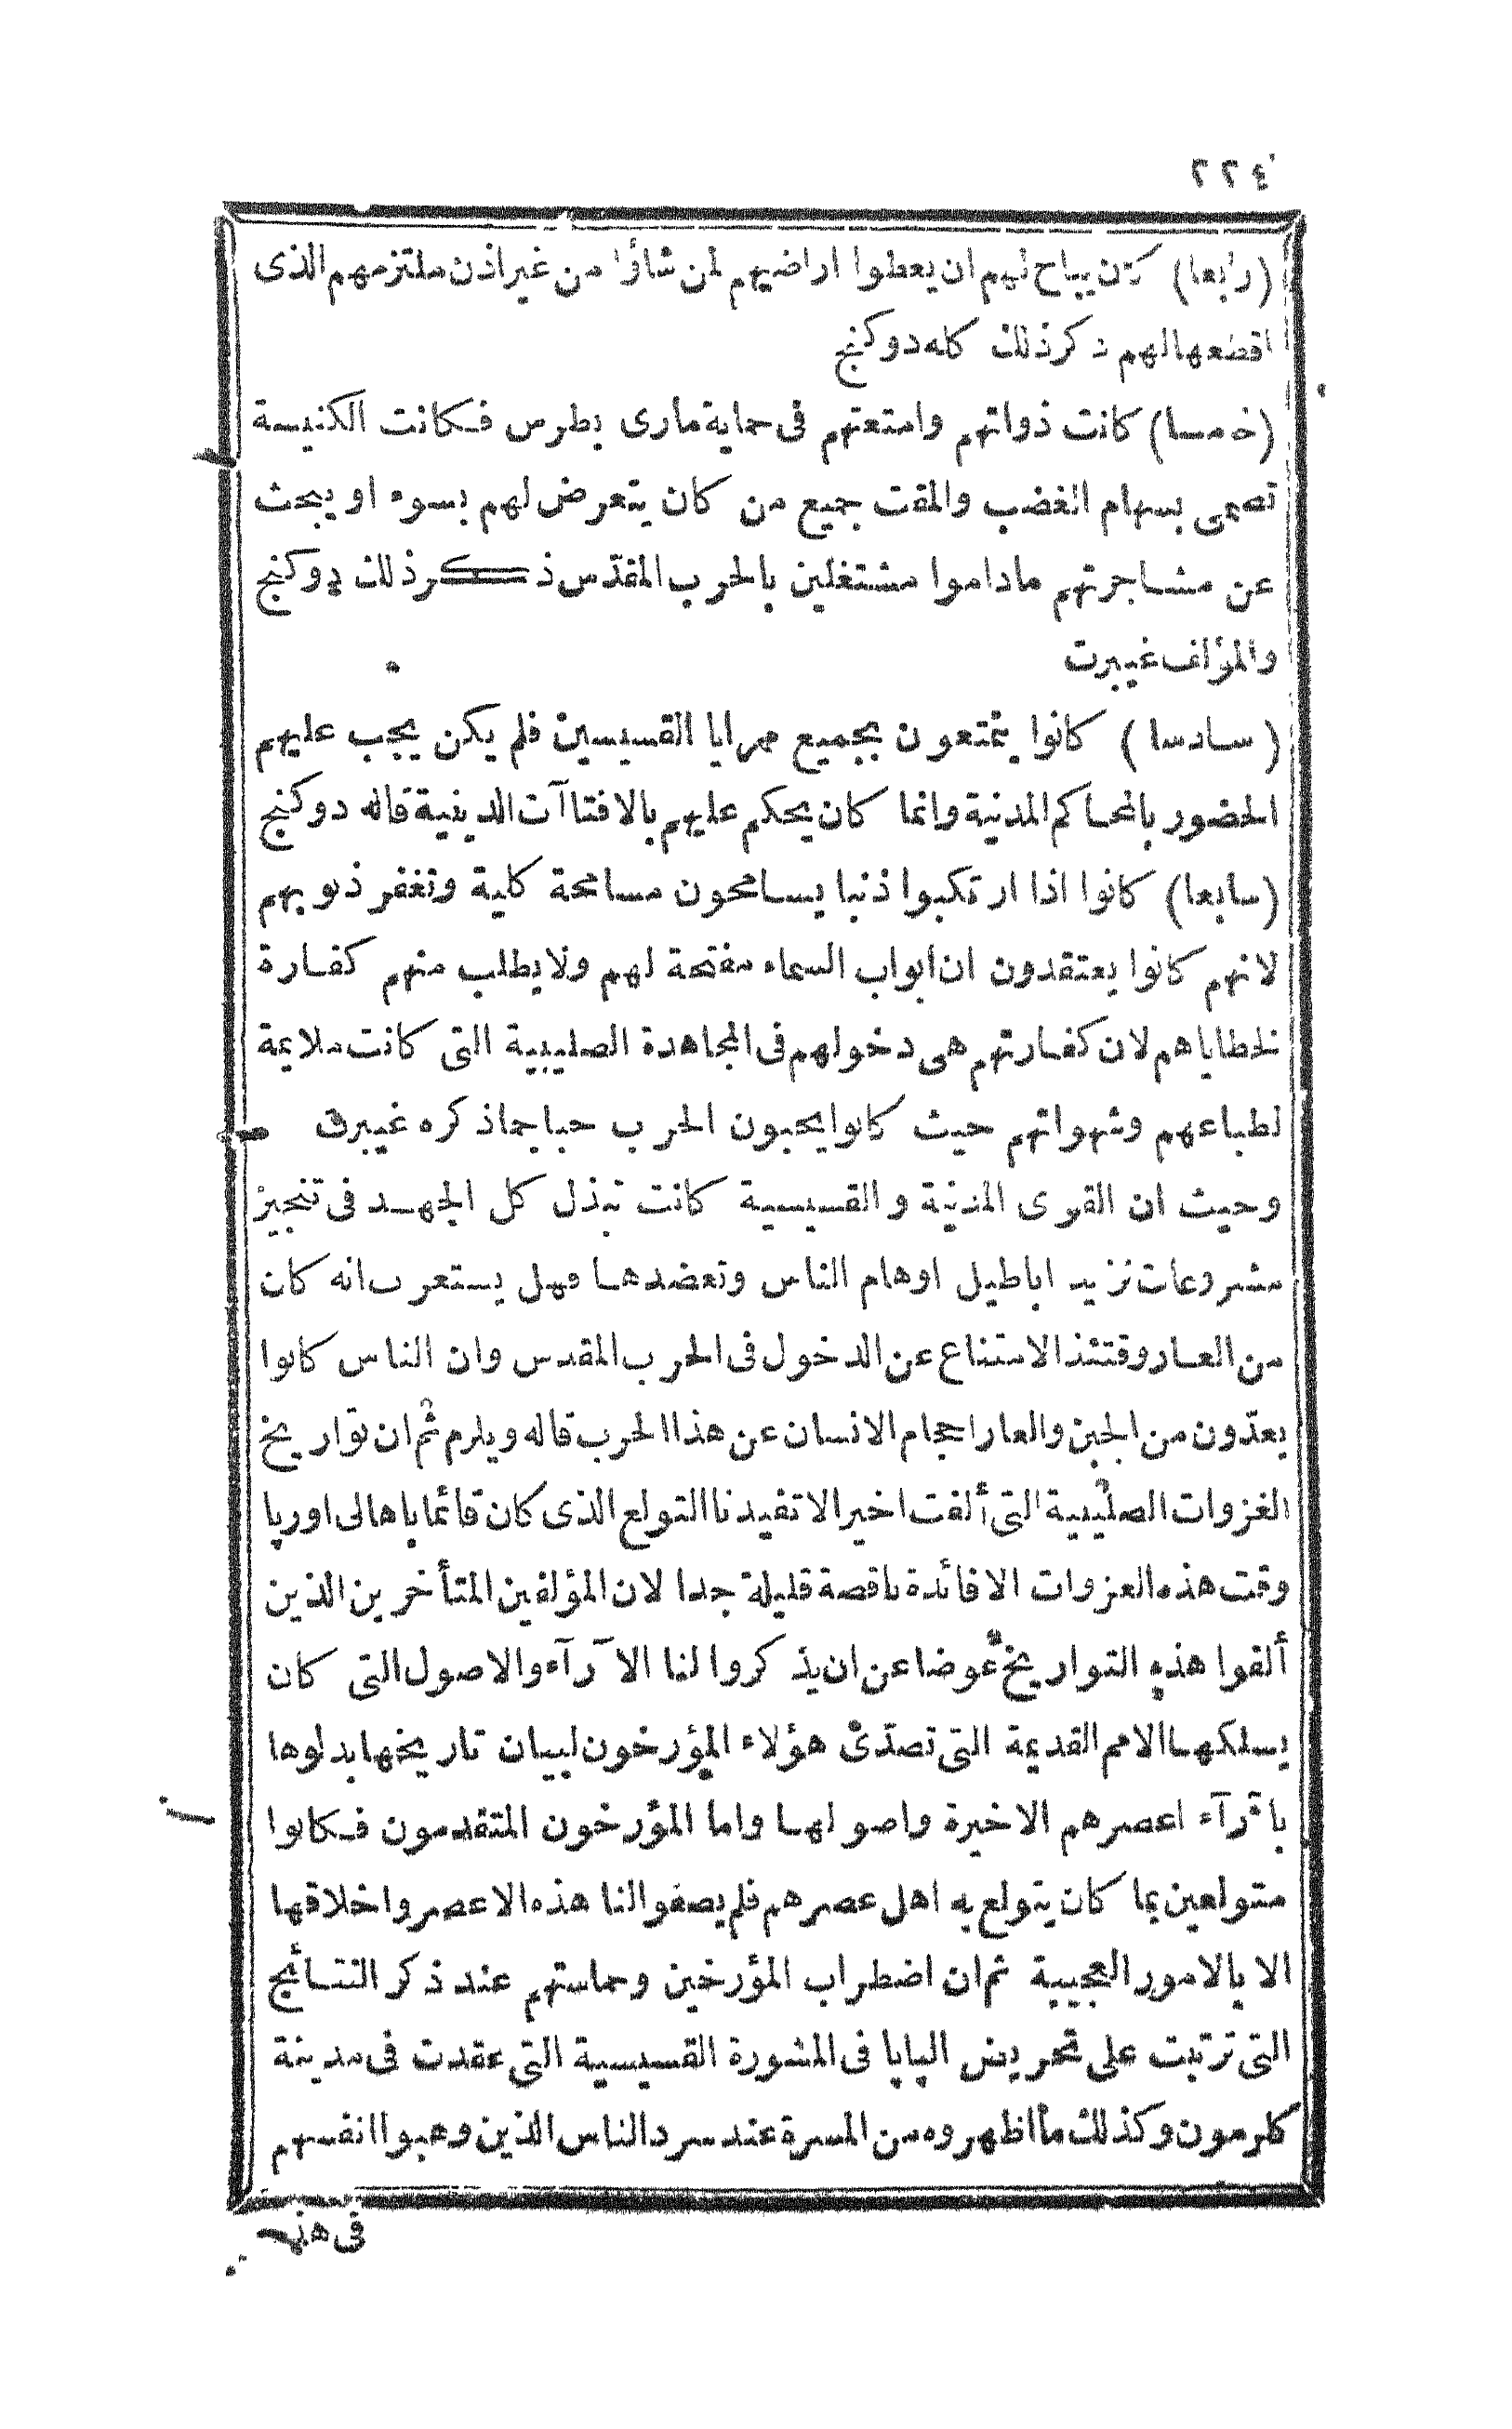 ٢٢٤
(رابعا) كان يباح لهم ان يعطوا اراضيهم لمن شاؤا من غير اذن ملتزمهم الذى
اقطعها لهم ذكر ذلك كله دوكنج
(خامسا) كانت ذواتهم وامتعتهم فى حماية مارى بطرس فكانت الكنيسة
تصمى بسهام الغضب والمقت جميع من كان يتعرض لهم بسوء او يبحث
عن مشاجرتهم ماداموا مشتغلين بالحرب المقدّس ذكر ذلك دوكنج
والمؤلف غيبرت
(سادسا) كانوا يتمتعون بجميع مزايا القسيسين فلم يكن يجب عليهم
الحضور بالمحاكم المدنية وانما كان يحكم عليهم بالافتاآت الدينية قاله دوكنج
(سابعا) كانوا اذا ارتكبوا ذنبا يسامحون مسامحة كلية وتغفر ذنوبهم
لانهم كانوا يعتقدون ان ابواب السماء مفتحة لهم ولا يطلب منهم كفارة
لخطاياهم لان كفارتهم هى دخولهم فى المجاهدة الصليبية التى كانت ملايمة
لطباعهم وشهواتهم حيث كانوا يحبون الحرب حبا جما ذكره غيبرت
وحيث ان القوى المدنية والقسيسية كانت تبذل كل الجهد فى تنجيز
مشروعات تزيد اباطيل اوهام الناس وتعضدها فهل يستغرب انه كان
من العار وقتئذ الامتناع عن الدخول فى الحرب المقدس وان الناس كانوا
يعدّون من الجبن والعار احجام الانسان عن هذا الحرب قاله ويلرم ثم ان تواريخ
الغزوات الصليبية التى ألفت اخيرا لا تفيدنا التولع الذى كان قائما باهالى اورپا
وقت هذه الغزوات الا فائدة ناقصة قليلة جدا لان المؤلفين المتأخرين الذين
ألفوا هذه التواريخ عوضا عن ان يذكروا لنا الآرآء والاصول التى كان
يسلكها الامم القديمة التى تصدّى هؤلاء المؤرخون لبيان تاريخها بدلوها
بآرآء اعصرهم الاخيرة واصولها واما المؤرخون المتقدمون فكانوا
متولعين بما كان يتولع به اهل عصرهم فلم يصفوا لنا هذه الاعصر واخلاقها
الا بالامور العجيبة ثم ان اضطراب المؤرخين وحماستهم عند ذكر النتائج
التى ترتبت على تحريض الپاپا فى المشورة القسيسية التى عقدت فى مدينة
كلرمون وكذلك ما اظهروه من المسرة عند سرد الناس الذين وهبوا انفسهم
فى هذه